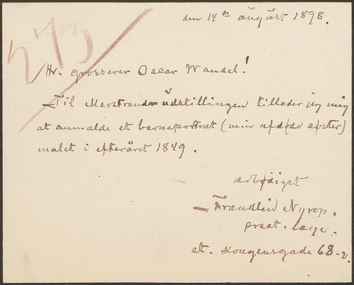 273
den 14de august 1898.
Hr. grosserer Oscar Wandel!
Til Marstrand udstillingen tillader jeg mig
at anmelde et barneportræt (min afdøde søster)
malet i efteråret 1849.
ærbødigst
Nyrop.
præst. læge.
st. kongensgade 68-2.